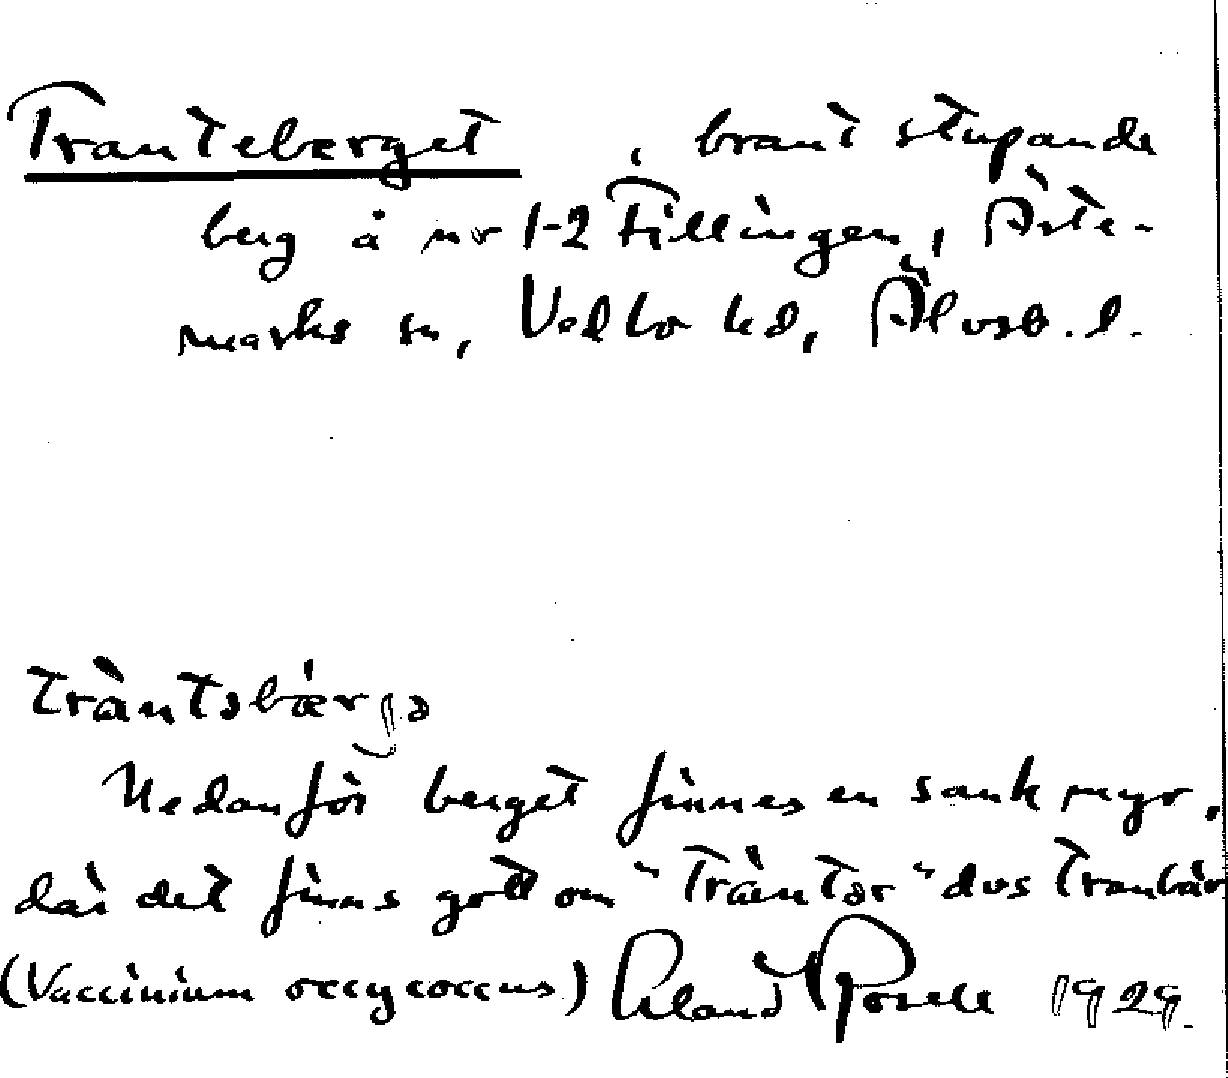 Tranteberget , brant stupande
berg å nr 1-2 Fillingen, Ärte-
marks sn, Vedbo hd, Älvsb. l.
tràntəbǽrgə
Nedanför berget finnes en sank myr,
där det finns gott om "Tràntər" dvs Tranbär
(Vaccinium occycoccus) Roland 1929.